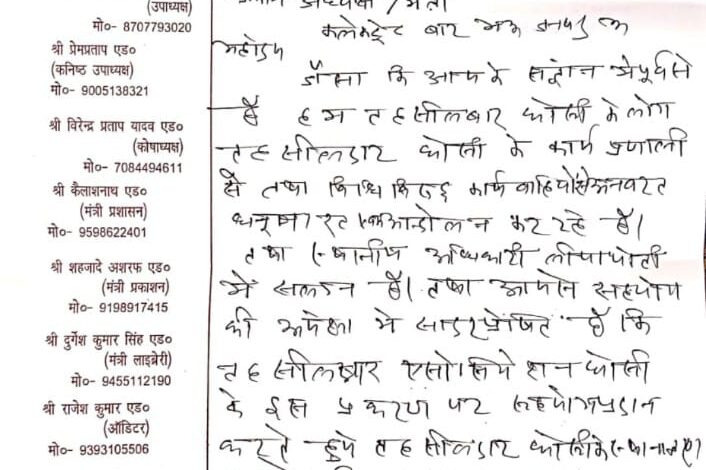 (उपाध्यक्ष)
मो०- 8707793020
श्री प्रेमप्रताप एड०
(कनिष्ठ उपाध्यक्ष)
मो०- 9005138321
श्री विरेन्द्र प्रताप यादव एड०
(कोषाध्यक्ष)
मो०- 7084494611
श्री कैलाशनाथ एड०
(मंत्री प्रशासन)
मो०- 9598622401
श्री शहजादे अशरफ एड०
(मंत्री प्रकाशन)
मो०- 9198917415
श्री दुर्गेश कुमार सिंह एड०
(मंत्री लाइब्रेरी)
मो०- 9455112190
श्री राजेश कुमार एड०
(ऑडिटर)
मो०- 9393105506
अध्यक्ष / मंत्री
कलेक्ट्रेट बार मऊ जनपद मऊ
महोदय
जैसा कि आपके संज्ञान में पूर्व से
है हम तहसील बार घोसी के लोग
तहसीलदार घोसी के कार्य प्रणाली
से तथा विधि विरुद्ध कार्यवाहियों से अनवरत
आन्दोलन कर रहे हैं।
तथा स्थानीय अधिकारी लीपापोती
में संलग्न हैं। तथा आपसे सहयोग
की अपेक्षा में सादर प्रेषित है कि
तहसील बार एसोसियेशन घोसी
के इस प्रकरण पर सहयोग प्रदान
करते हुये तहसीलदार घोसी के स्थानान्तरण